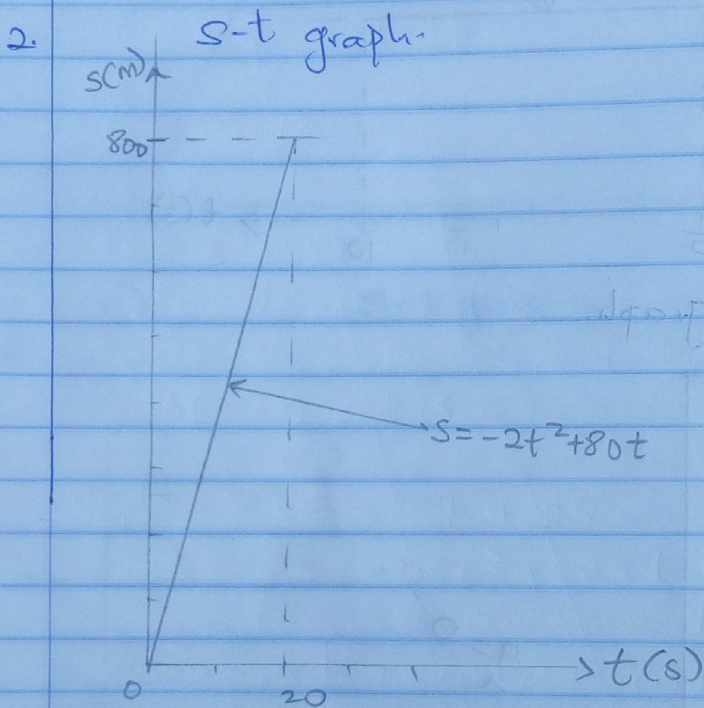 2. s-t graph.
s(m)
800
s=-2t²+80t
t(s)
0 20